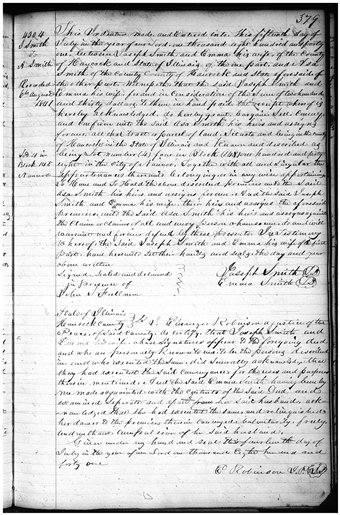 379
4304
J Smith
to
A Smith
Recorded
1841
Lot 4 in
Block 108
Nauvoo
This Indenture made and entered into this fifteenth day of
July in the year of our Lord one thousand eight hundred and forty
one between Joseph Smith and Emma his wife of the County
of Hancock and State of Illinois of the one part, and Asa
Smith of the County of Hancock and State aforesaid of
the other part Witnesseth that the said Joseph Smith and
Emma his wife, for and in Consideration of the Sum of two hundred
and thirty dollars to them in hand paid the receipt whereof is
hereby acknowledged, do hereby grant bargain Sell Convey
and Confirm unto the said Asa Smith his heirs and assigns
forever all that tract or parcel of land Situate and being in the County
of Hancock in the State of Illinois and Known and described as
being Lot number (4) four in Block (108) one hundred and
eight in the City of Nauvoo. Together with all and Singular the
appurtenances thereunto belonging or in any wise appertaining
to Have and to Hold the above described premises unto the said
Asa Smith his heirs and assigns forever. And the said Joseph
Smith and Emma his wife, their heirs and assigns the aforesaid
premises unto the said Asa Smith his heirs and assigns against
the Claim or Claims of all and every person whomsoever, do and will
warrant and forever defend by these presents. In testimony
whereof the said Joseph Smith and Emma his wife of the first
part have hereunto Set their hands and seals the day and year
above written
Signed Sealed and delivered
in presence of
John S Fullmer
Joseph Smith
Emma Smith
State of Illinois
Hancock County I Ebenezer Robinson a justice of the
Peace of said County do certify that Joseph Smith and
Emma his wife whose signatures appear to the foregoing deed
and who are personally Known to me to be the persons described
in and who executed the same did severally acknowledge that
they had executed the said conveyance for the uses and purposes
therein mentioned; And the said Emma Smith having been by
me made acquainted with the Contents of the said Deed, and
examined Separate and apart from her said husband, ack-
nowledged that she had executed the same and relinquished
her dower to the premises therein Conveyed voluntarily, freely
and without Compulsion of her said husband.
Given under my hand and Seal this day of
July in the year of our Lord one thousand Eight hundred and
forty one
E Robinson J.P.